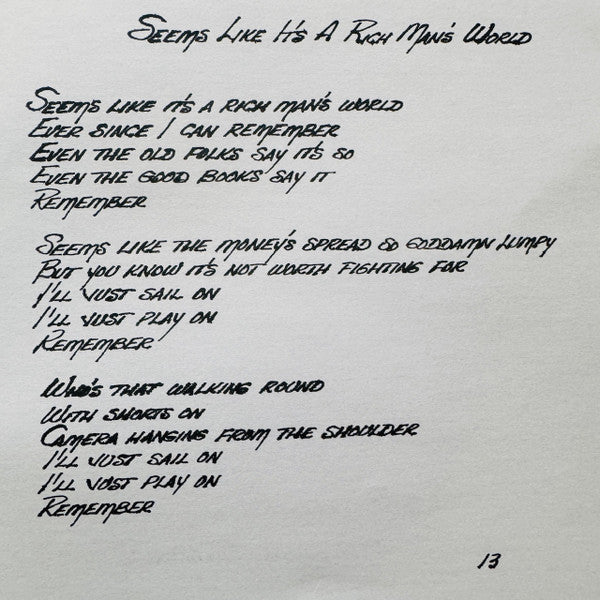 Seems Like It's A Rich Man's World
Seems like it's a rich man's world
Ever since I can remember
Even the old folks say it's so
Even the good books say it
Remember
Seems like the money's spread so goddamn lumpy
But you know it's not worth fighting for
I'll just sail on
I'll just play on
Remember
Who's that walking round
With shorts on
Camera hanging from the shoulder
I'll just sail on
I'll just play on
Remember
13